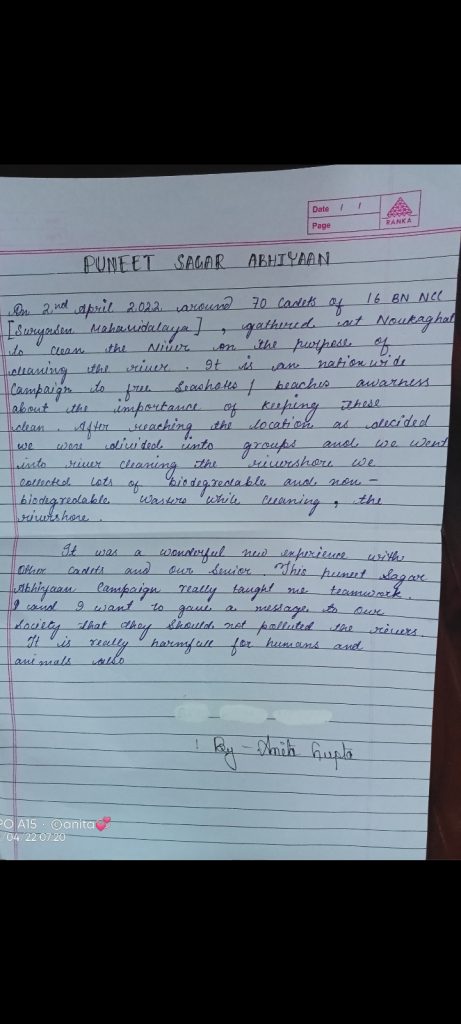 Date / /
Page
RANKA
PUNEET SAGAR ABHIYAAN
On 2nd April 2022 around 70 Cadets of 16 BN NCC
[Suryasen Mahavidalaya] , gathered at Noukaghat
to clean the River on the purpose of
cleaning the river. It is an nation wide
Campaign to free / beaches awarness
about the importance of keeping these
clean. After reaching the location as decided
we were divided into groups and we went
into river cleaning the rivershore we
collected lots of biodegredable and non-
biodegredable while cleaning, the
rivershore.
It was a wonderful new experience with
other cadets and our Senior. This puneet Sagar
Abhiyaan Campaign really taught me teamwork.
I and I want to gave a message to our
Society that they should not polluted the rivers.
It is really harmfull for humans and
animals also
: By - Anita Gupta
PO A15 · @anita💕
04/22:07:20